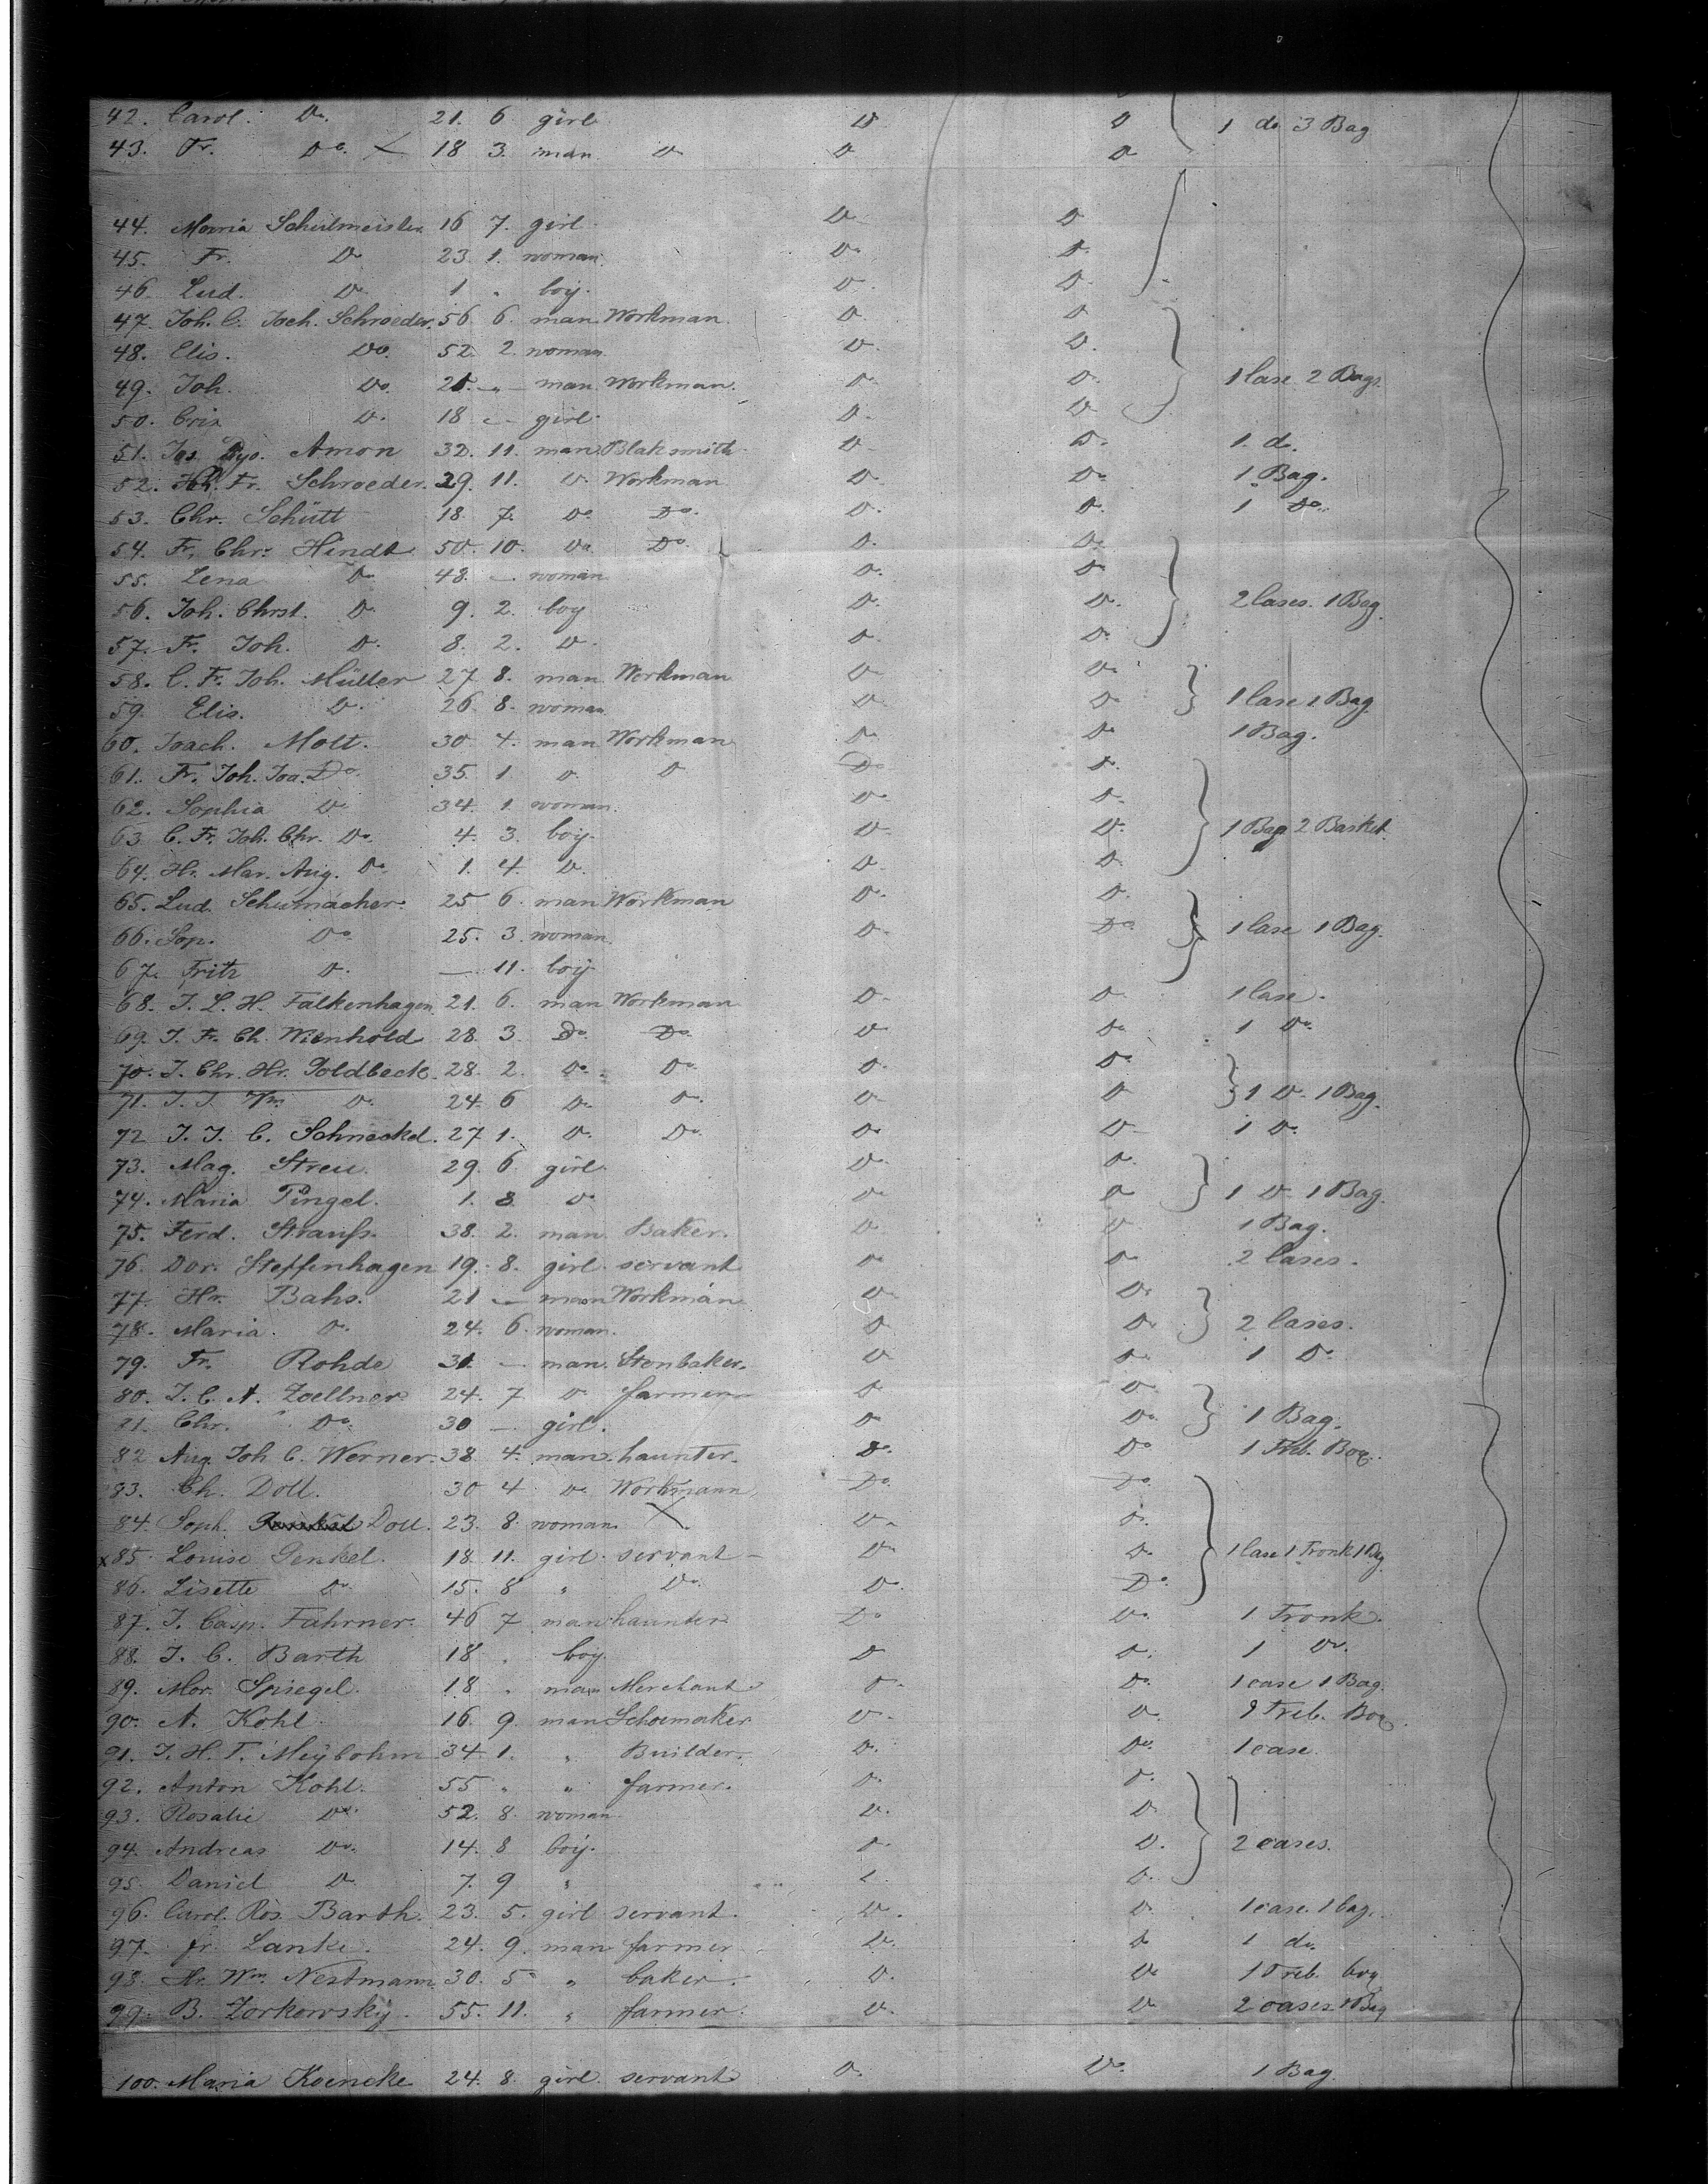 42. Carol. Do. 21. 6 girl Do Do 1 do 3 Bag
43. Fr. Do. 18 3. man Do Do Do
44. Maria Schulmeister 16 7. girl Do Do
45. Fr. Do 23. 1. woman. Do Do
46. Lud. Do. 1 „ boy. Do. Do.
47. Joh. C. Joch. Schroeder. 56. 6. man Workman. Do. Do
48. Elis. Do. 52. 2. woman. Do. Do.
49. Joh. Do. „ man Workman. Do. Do. 1 Case 2 Bags.
50. Do. 18 — girl. Do. Do
51. Amon 32. 11. man Blaksmith Do Do. 1. d.
52. Joh. Fr. Schroeder. 29. 11. Do. Workman Do Do 1 Bag.
53. Chr. Schütt 18. 7. Do. Do. Do. Do. 1 Do.
54. Fr. Chr. Hindt 50. 10. Do. Do. Do. Do.
55. Lena Do. 48. — woman Do. Do
56. Joh. Christ. Do. 9. 2. boy Do. Do. 2 Cases. 1 Bag.
57. Fr. Joh. Do. 8. 2. Do. Do. Do.
58. C. Fr. Joh. Müller 27 8. man Workman Do Do.
59. Elis. Do. 26. 8. woman Do. Do 1 Case 1 Bag
60. Joach. Molt. 30 4. man Workman Do. Do 1 Bag.
61. Fr. Joh. Joa. Do. 35. 1. Do. Do Do Do.
62. Sophia Do 34. 1. woman. Do. Do.
63 C. Fr. Joh. Chr. Do. 4. 3. boy. Do Do. 1 Bag 2 Basket
64. Hr. Mar. Aug. Do. 1. 4. Do. Do. Do.
65. Lud. Schumacher. 25 6. man Workman Do. Do.
66. Sop. Do. 25. 3. woman. Do. Do. 1 Case 1 Bag.
67. Fritz Do. — 11. boy
68. J. L. H. Falkenhagen 21. 6. man Workman Do. Do. 1 Case.
69. J. Fr. Ch. Wienhold 28. 3 Do. Do. Do Do 1 Do.
70. J. Chr. Hr. Goldbeck. 28. 2. Do. Do. Do. Do
71. J. J. Wm. Do. 24. 6 Do. Do. Do. Do 1 Do. 1 Bag.
72 J. J. C. Schneckel. 27 1. Do. Do. Do Do 1 Do.
73. Mag. Streu. 29. 6. girl. Do. Do.
74. Maria Pingel. 1. 8 Do Do Do 1 Do 1 Bag.
75. Ferd. Strauss. 38. 2. man Baker. Do Do 1 Bag.
76. Dor. Steffenhagen 19. 8. girl servant Do Do 2 Cases.
77. Hr. Bahs. 21 — man Workman Do Do.
78. Maria. Do. 24. 6. woman. Do Do. 2 Cases.
79. Fr. Rohde 31. — man. Stonbaker. Do Do. 1 Do.
80. J. C. A. Zoellner 24. 7 Do farmer Do Do.
81. Chr. Do. 30 — girl. Do Do. 1 Bag.
82 Aug. Joh C. Werner. 38 4. man. haunter. Do. Do 1 Box.
83. Ch. Doll. 30 4 Do. Workmann Do. Do.
84. Soph. Doll. 23. 8. woman. Do. Do.
x85. Louise Genkel. 18. 11. girl. servant Do. Do. 1 Case 1 Tronk 1 Bag
86. Lisette Do. 15. 8 „ Do. Do. Do.
87. J. Casp. Fahrner. 46 7 man haunter Do Do. 1 Tronk.
88. J. C. Barth 18 „ boy Do Do. 1 Do.
89. Mor. Spiegel. 18 „ man Merchant Do. Do. 1 case 1 Bag.
90. A. Kohl 16. 9. man Schoemaker Do. Do. Box
91. J. H. F. Meybohm 34. 1. „ Builder. Do. Do. 1 case.
92. Anton Kohl. 55 „ „ farmer. Do. Do.
93. Rosalie Do. 52. 8. woman Do. Do.
94. Andreas Do. 14. 8 boy. Do. Do. 2 cases.
95. Daniel Do. 7. 9 „ Do.
96. Carol. Ros. Barth. 23. 5. girl servant. Do. Do. 1 case. 1 bag.
97. fr. Lanke. 24. 9. man farmer Do. Do 1 do.
98. Hr. Wm. Nestmann 30. 5 „ baker. Do. Do. 1 box
99. B. Zorkowsky. 55. 11. „ farmer. Do. Do. 2 cases 1 Bag
100. Maria Koencke 24. 8. girl. servant Do. Do. 1 Bag